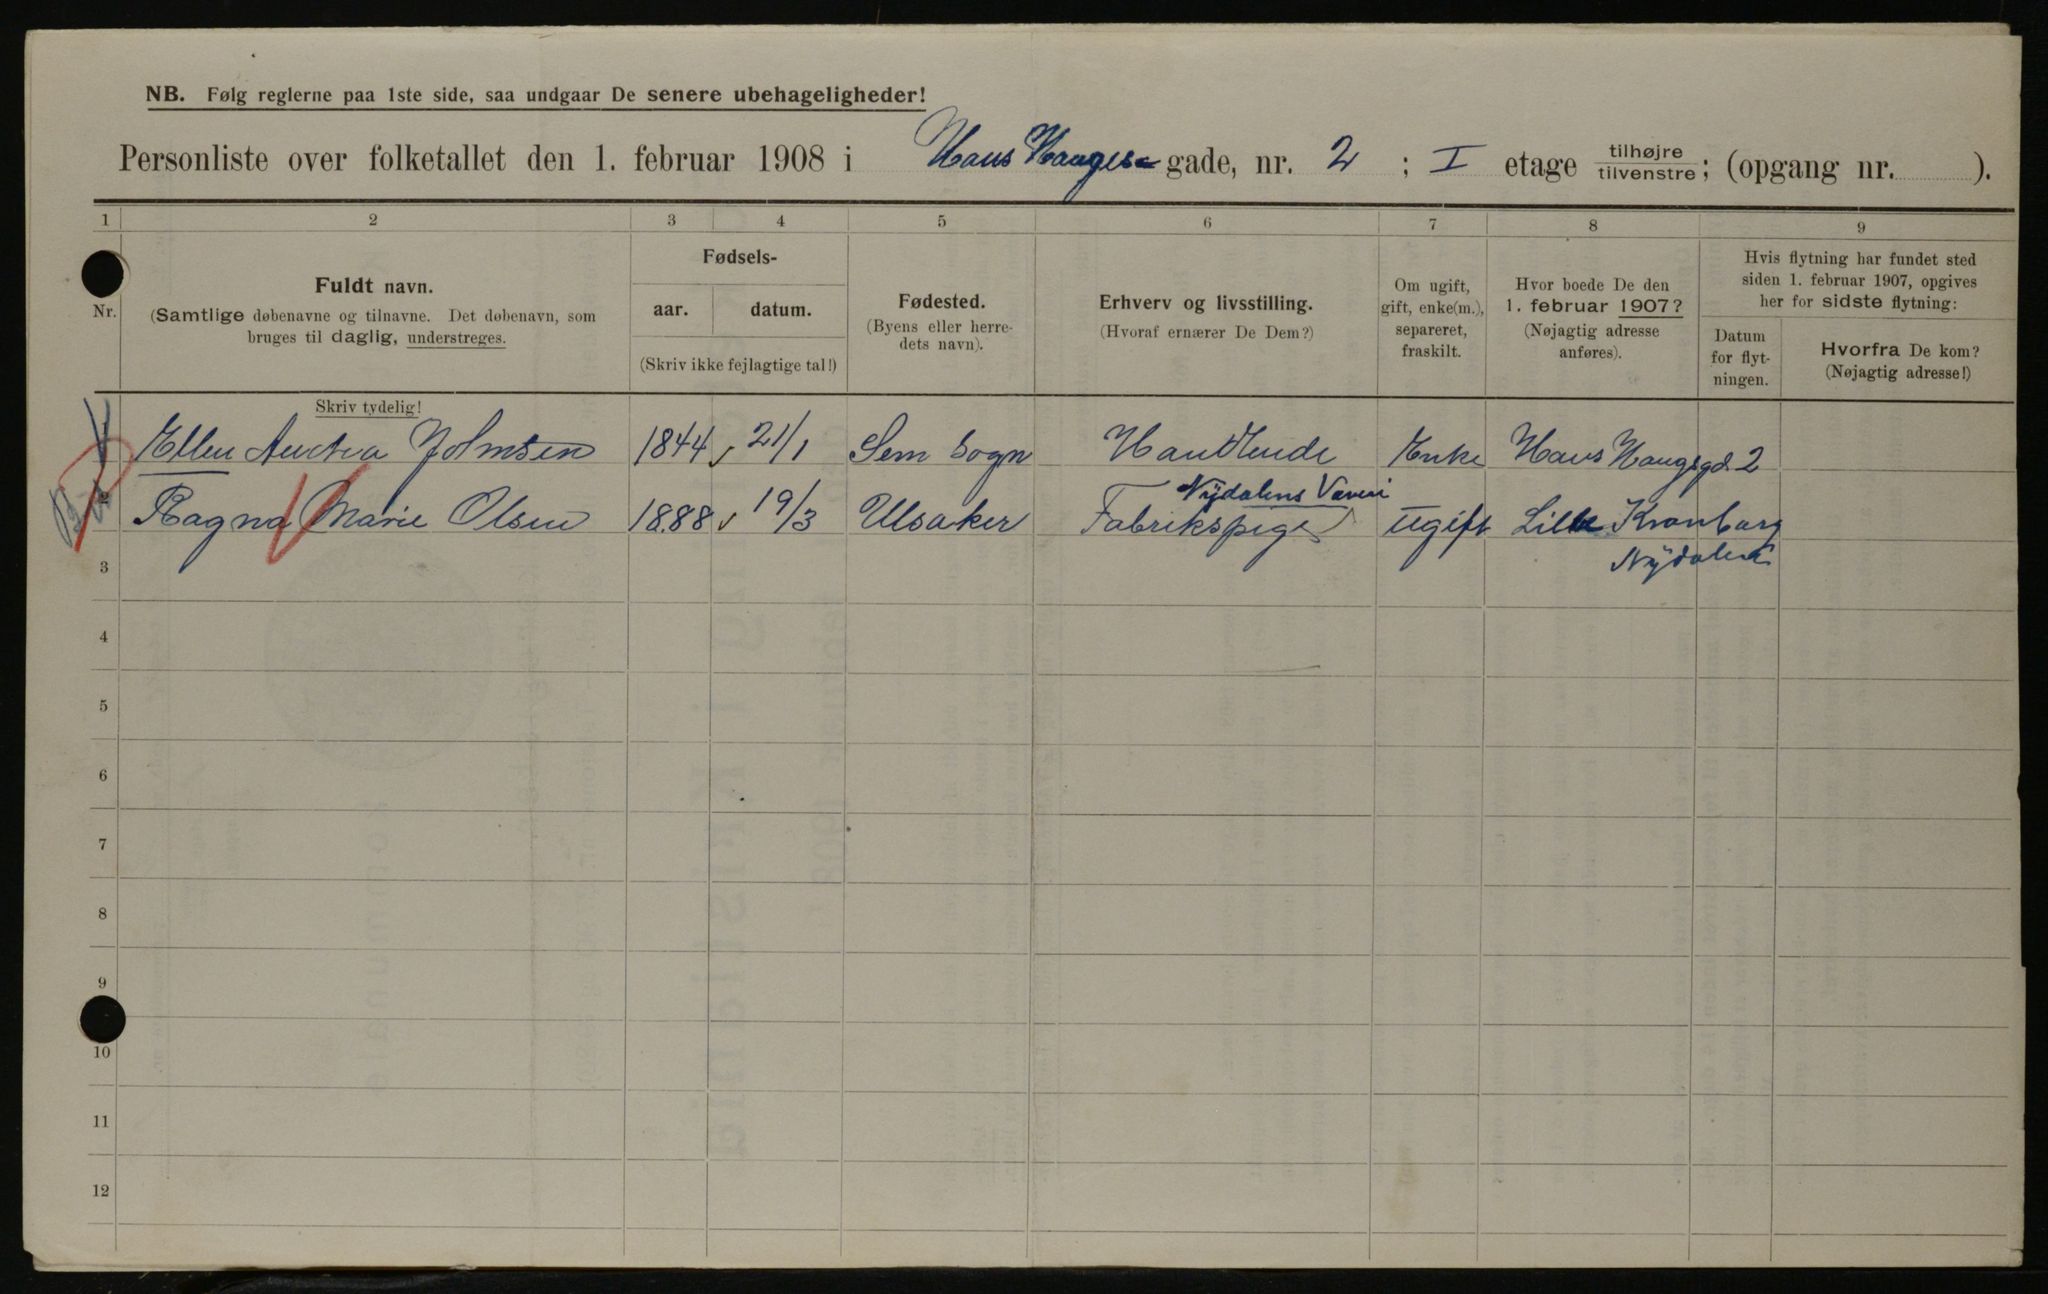 NB. Følg reglerne paa 1ste side, saa undgaar De senere ubehageligheder!
Personliste over folketallet den 1. februar 1908 i Hans Hauges gade, nr. 2 ; I etage tilhøjre / tilvenstre ; (opgang nr. ).
1 2 3 4 5 6 7 8 9
Nr.
Fuldt navn.
(Samtlige døbenavne og tilnavne. Det døbenavn, som
bruges til daglig, understreges.
Skriv tydelig!
Fødsels-
aar. datum.
(Skriv ikke fejlagtige tal!)
Fødested.
(Byens eller herre-
dets navn).
Erhverv og livsstilling.
(Hvoraf ernærer De Dem?)
Om ugift,
gift, enke(m.),
separeret,
fraskilt.
Hvor boede De den
1. februar 1907?
(Nøjagtig adresse
anføres).
Hvis flytning har fundet sted
siden 1. februar 1907, opgives
her for sidste flytning:
Datum
for flyt-
ningen.
Hvorfra De kom?
(Nøjagtig adresse!)
Ellen Johnsen 1844 21/1 Sem Sogn Handlende Enke Hans Haugsgd. 2
Nydalens Væveri
2 Ragna Marie Olsen 1888 19/3 Ulsaker Fabrikspige ugift Lille Kronborg
3 Nydalen
4
5
6
7
8
9
10
11
12